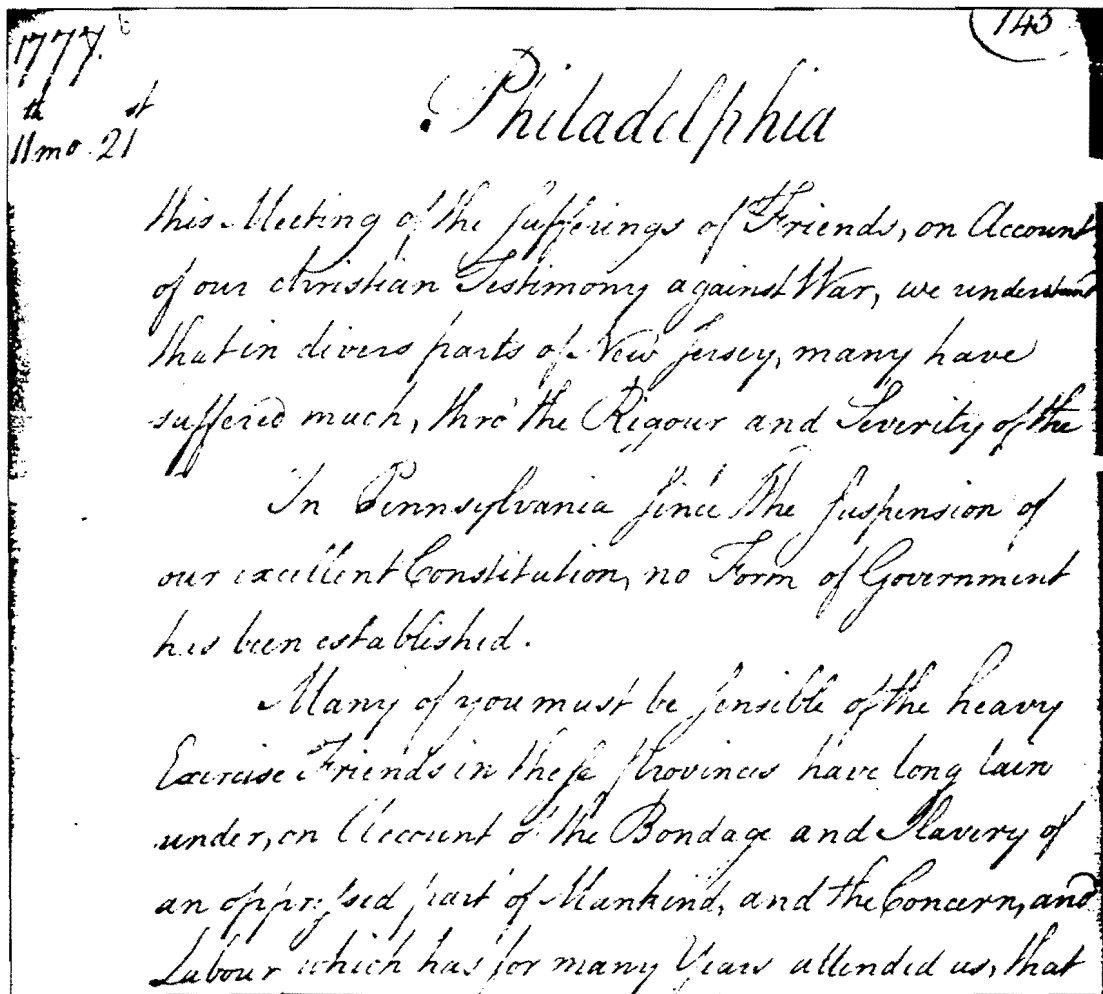 1777. 6
143
th st
11 mo 21
Philadelphia
this Meeting of the Sufferings of Friends, on Account
of our christian Testimony against War, we understand
that in divers parts of New Jersey, many have
suffered much, thro' the Rigour and Severity of the
In Pennsylvania since the Suspension of
our excellent Constitution, no Form of Government
has been established.
Many of you must be sensible of the heavy
Exercise Friends in these Provinces have long lain
under, on Account of the Bondage and Slavery of
an oppressed part of Mankind, and the Concern, and
Labour which has for many Years attended us, that